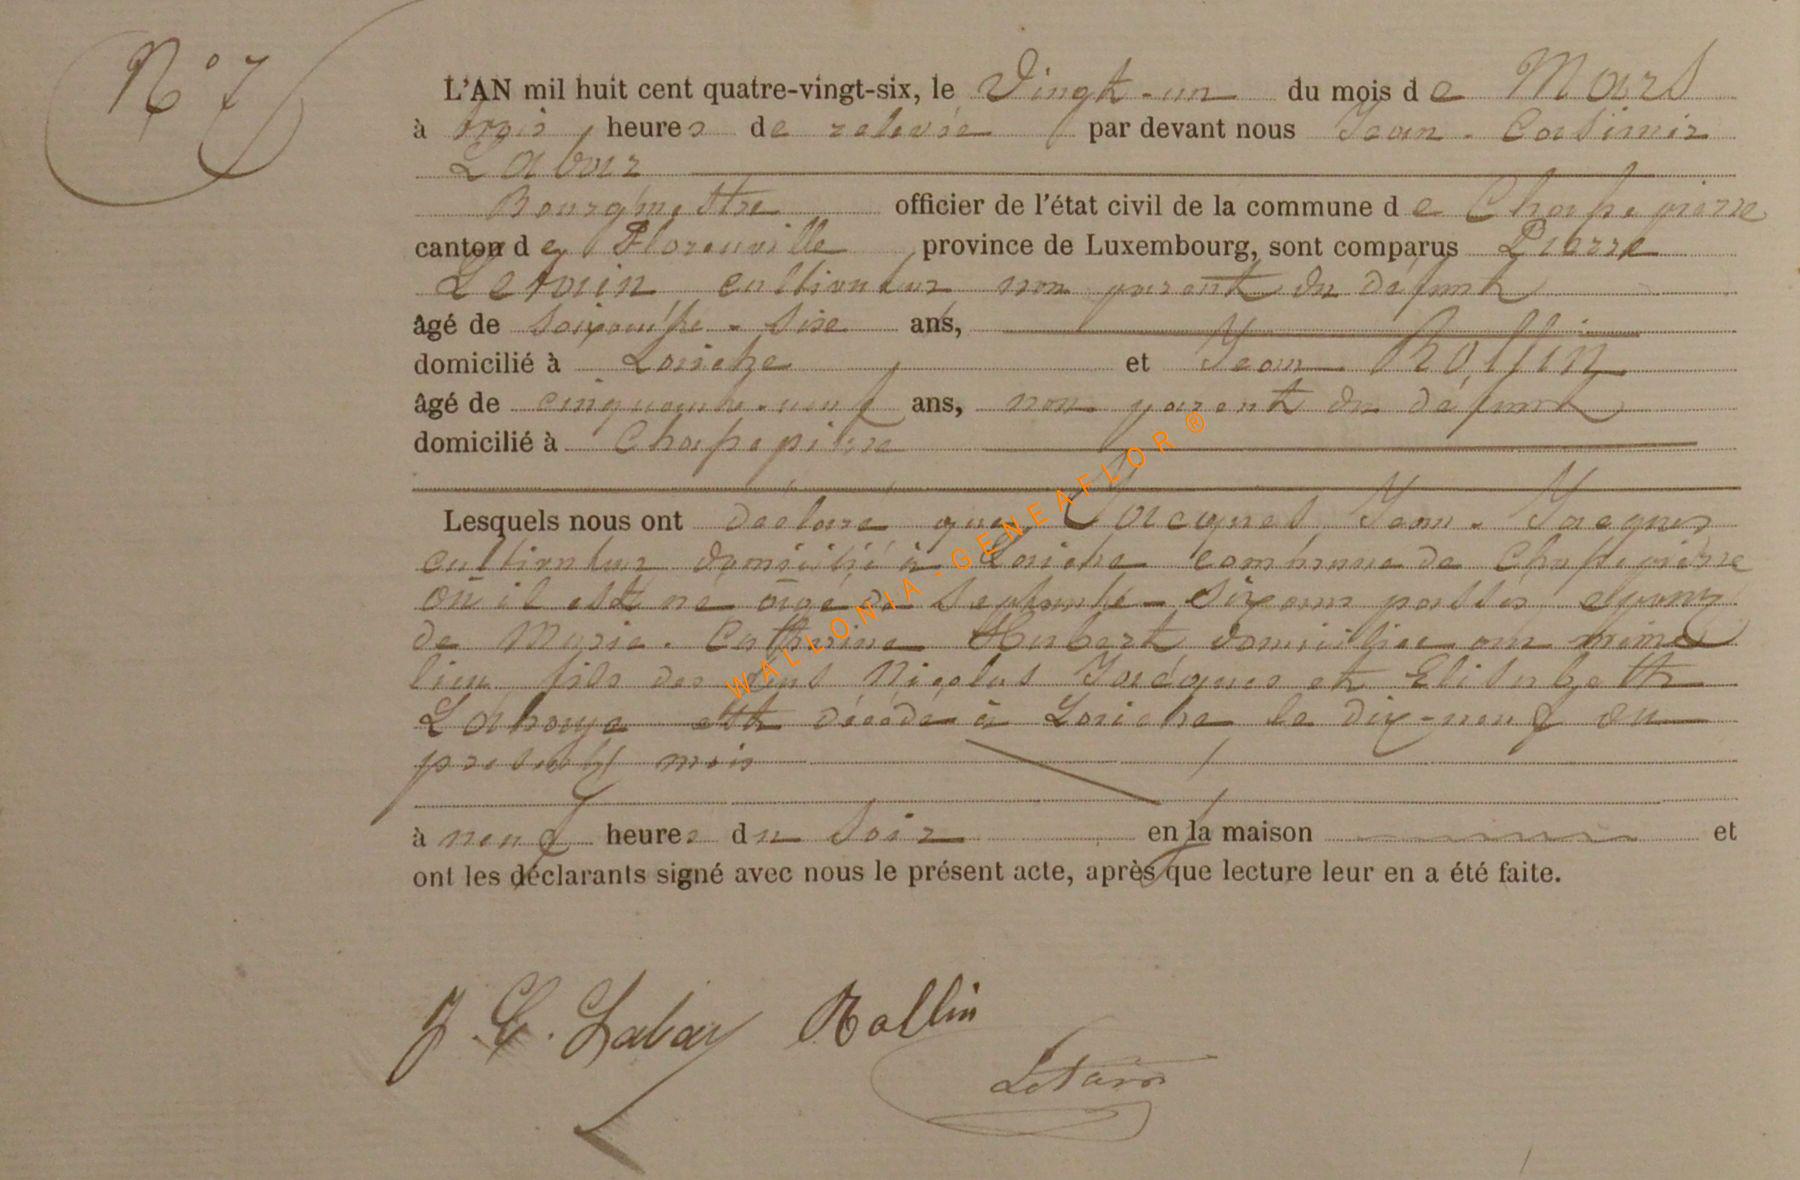 N° 7
L'AN mil huit cent quatre-vingt-six, le Vingt-un du mois de Mars
à trois heures de relevée par devant nous Jean-Casimir
Labar
Bourgmestre officier de l'état civil de la commune de Chassepierre
canton de Florenville province de Luxembourg, sont comparus Pierre
cultivateur non parent du défunt
âgé de soixante-six ans,
domicilié à Laiche et Jean Rollin
âgé de cinquante-neuf ans, non parent du défunt
domicilié à Chassepierre
Lesquels nous ont déclaré que Jacques Jean-Jacques
cultivateur domicilié à Laiche commune de Chassepierre
où il est né âgé de Septante-six ans passés époux
de Marie-Catherine Hubert domiciliée au même
lieu fils des Nicolas Jacques et Elisabeth
Lahaye est décédé à Laiche le dix-neuf du
présent mois
à neuf heures du soir en la maison et
ont les déclarants signé avec nous le présent acte, après que lecture leur en a été faite.
J. C. Labar Rollin
WALLONIA-GENEAFLOR®